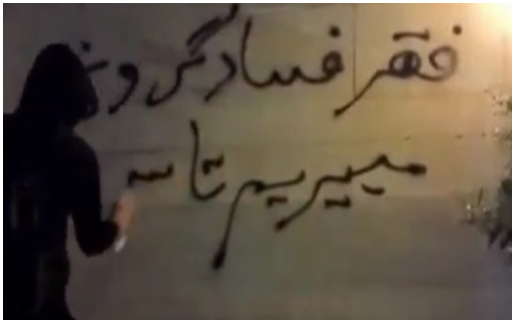 فقر فساد گرون
مییریم تا